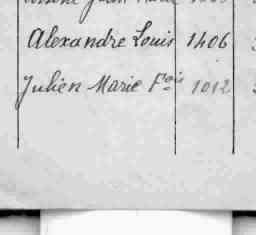 Jean Marie
Alexandre Louis 1406
Julien Marie Fois 1012